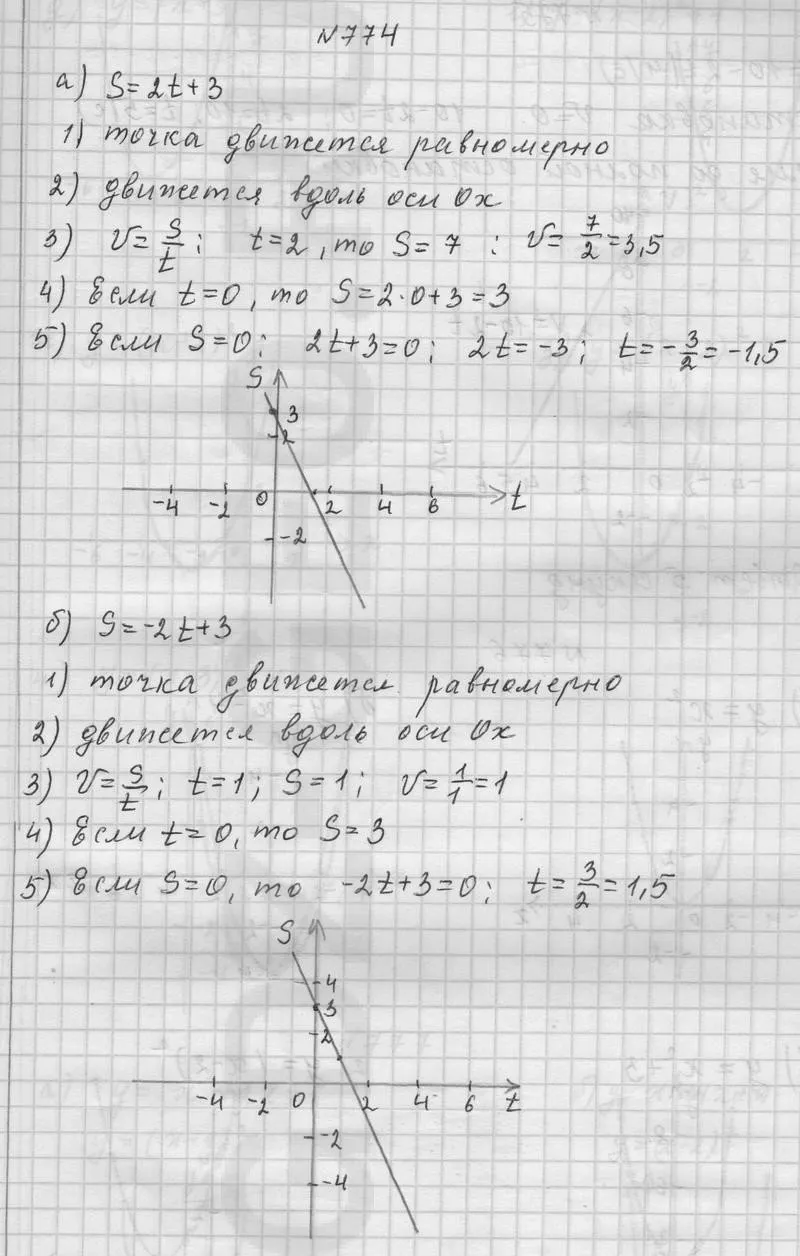 N774
а) S=2t+3
1) точка движется равномерно
2) движется вдоль оси Ох
3) V=S/t; t=2, то S=7 : V=7/2=3,5
4) Если t=0, то S=2·0+3=3
5) Если S=0; 2t+3=0; 2t=-3; t=-3/2=-1,5
S
3
2
-4 -2 0 2 4 6 t
-2
б) S=-2t+3
1) точка движется равномерно
2) движется вдоль оси Ох
3) V=S/t; t=1; S=1; V=1/1=1
4) Если t=0, то S=3
5) Если S=0, то -2t+3=0; t=3/2=1,5
S
4
3
2
-4 -2 0 2 4 6 t
-2
-4